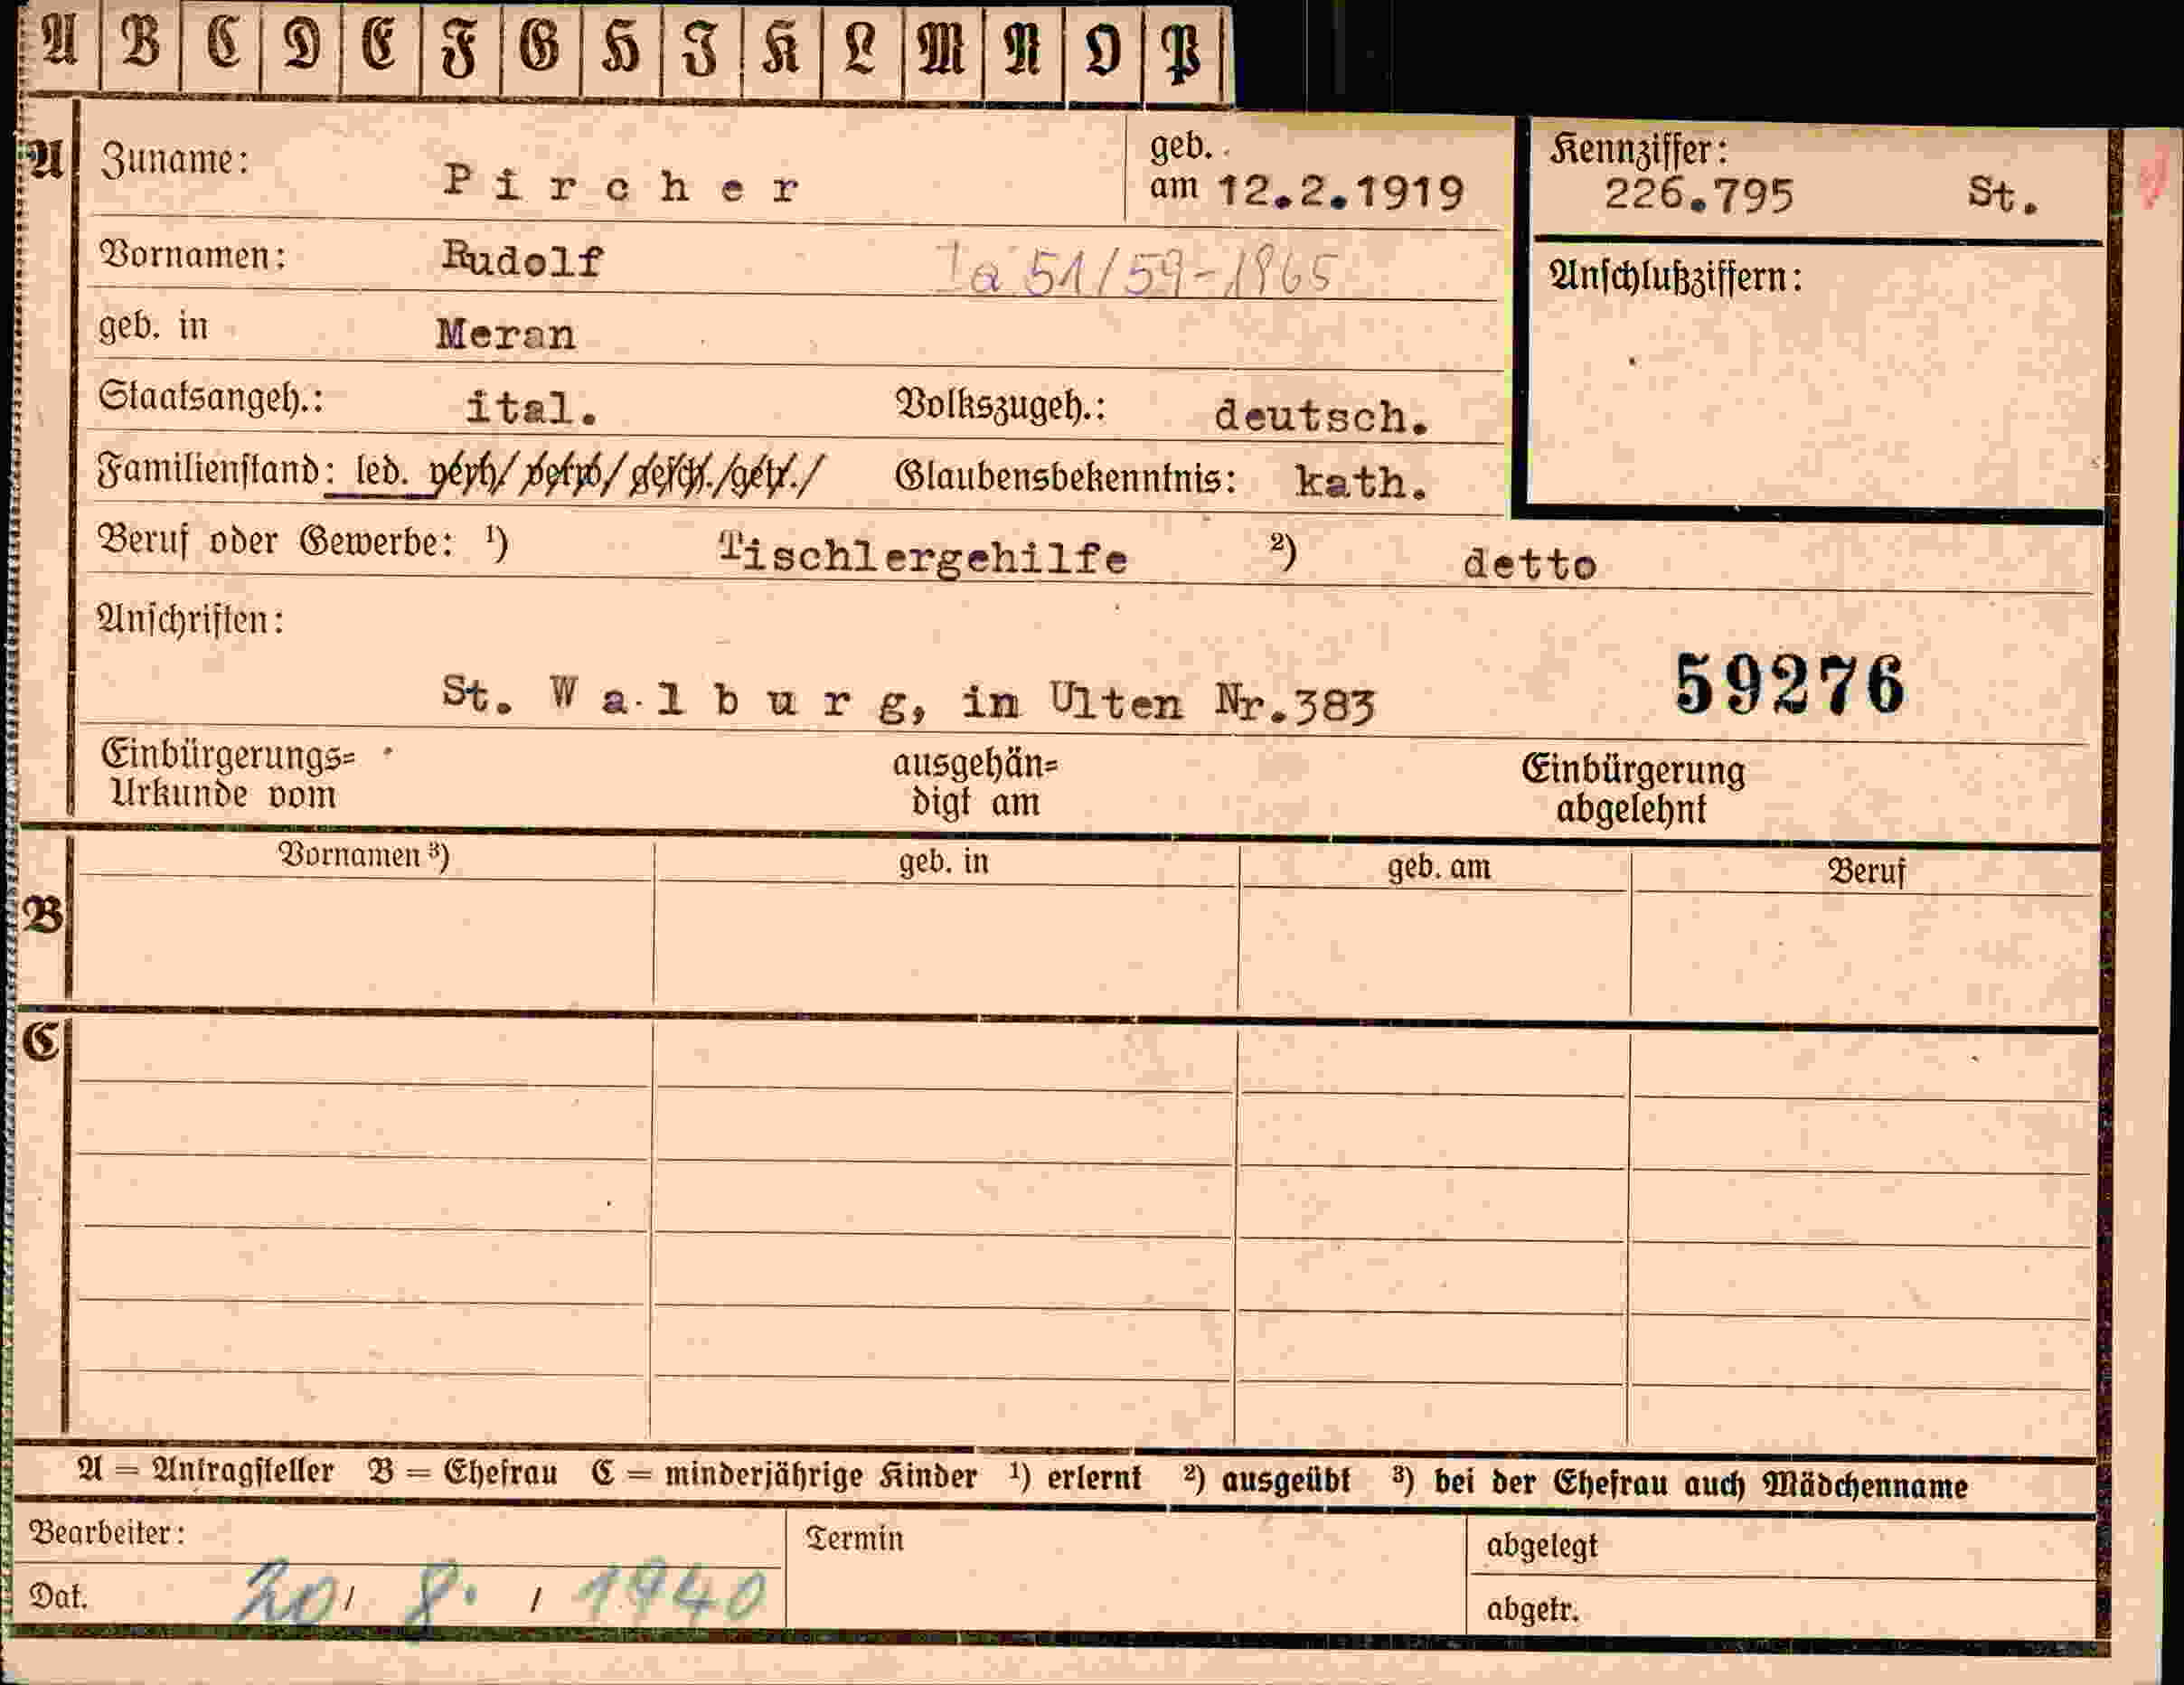 A B C D E F G H I K L M N O P
A Zuname: Pircher geb. am 12.2.1919 Kennziffer: 226.795 St.
Vornamen: Rudolf Ia 51/59-1965 Anschlußziffern:
geb. in Meran
Staatsangeh.: ital. Volkszugeh.: deutsch.
Familienstand: led. verh/ verw/ gesch./getr./ Glaubensbekenntnis: kath.
Beruf oder Gewerbe: ¹) Tischlergehilfe ²) detto
Anschriften:
59276
St. Walburg, in Ulten Nr.383
Einbürgerungs= ausgehän= Einbürgerung
Urkunde vom digt am abgelehnt
Vornamen ³) geb. in geb. am Beruf
B
C
A = Antragsteller B = Ehefrau C = minderjährige Kinder ¹) erlernt ²) ausgeübt ³) bei der Ehefrau auch Mädchenname
Bearbeiter: Termin abgelegt
Dat. 20/ 8. / 1940 abgetr.